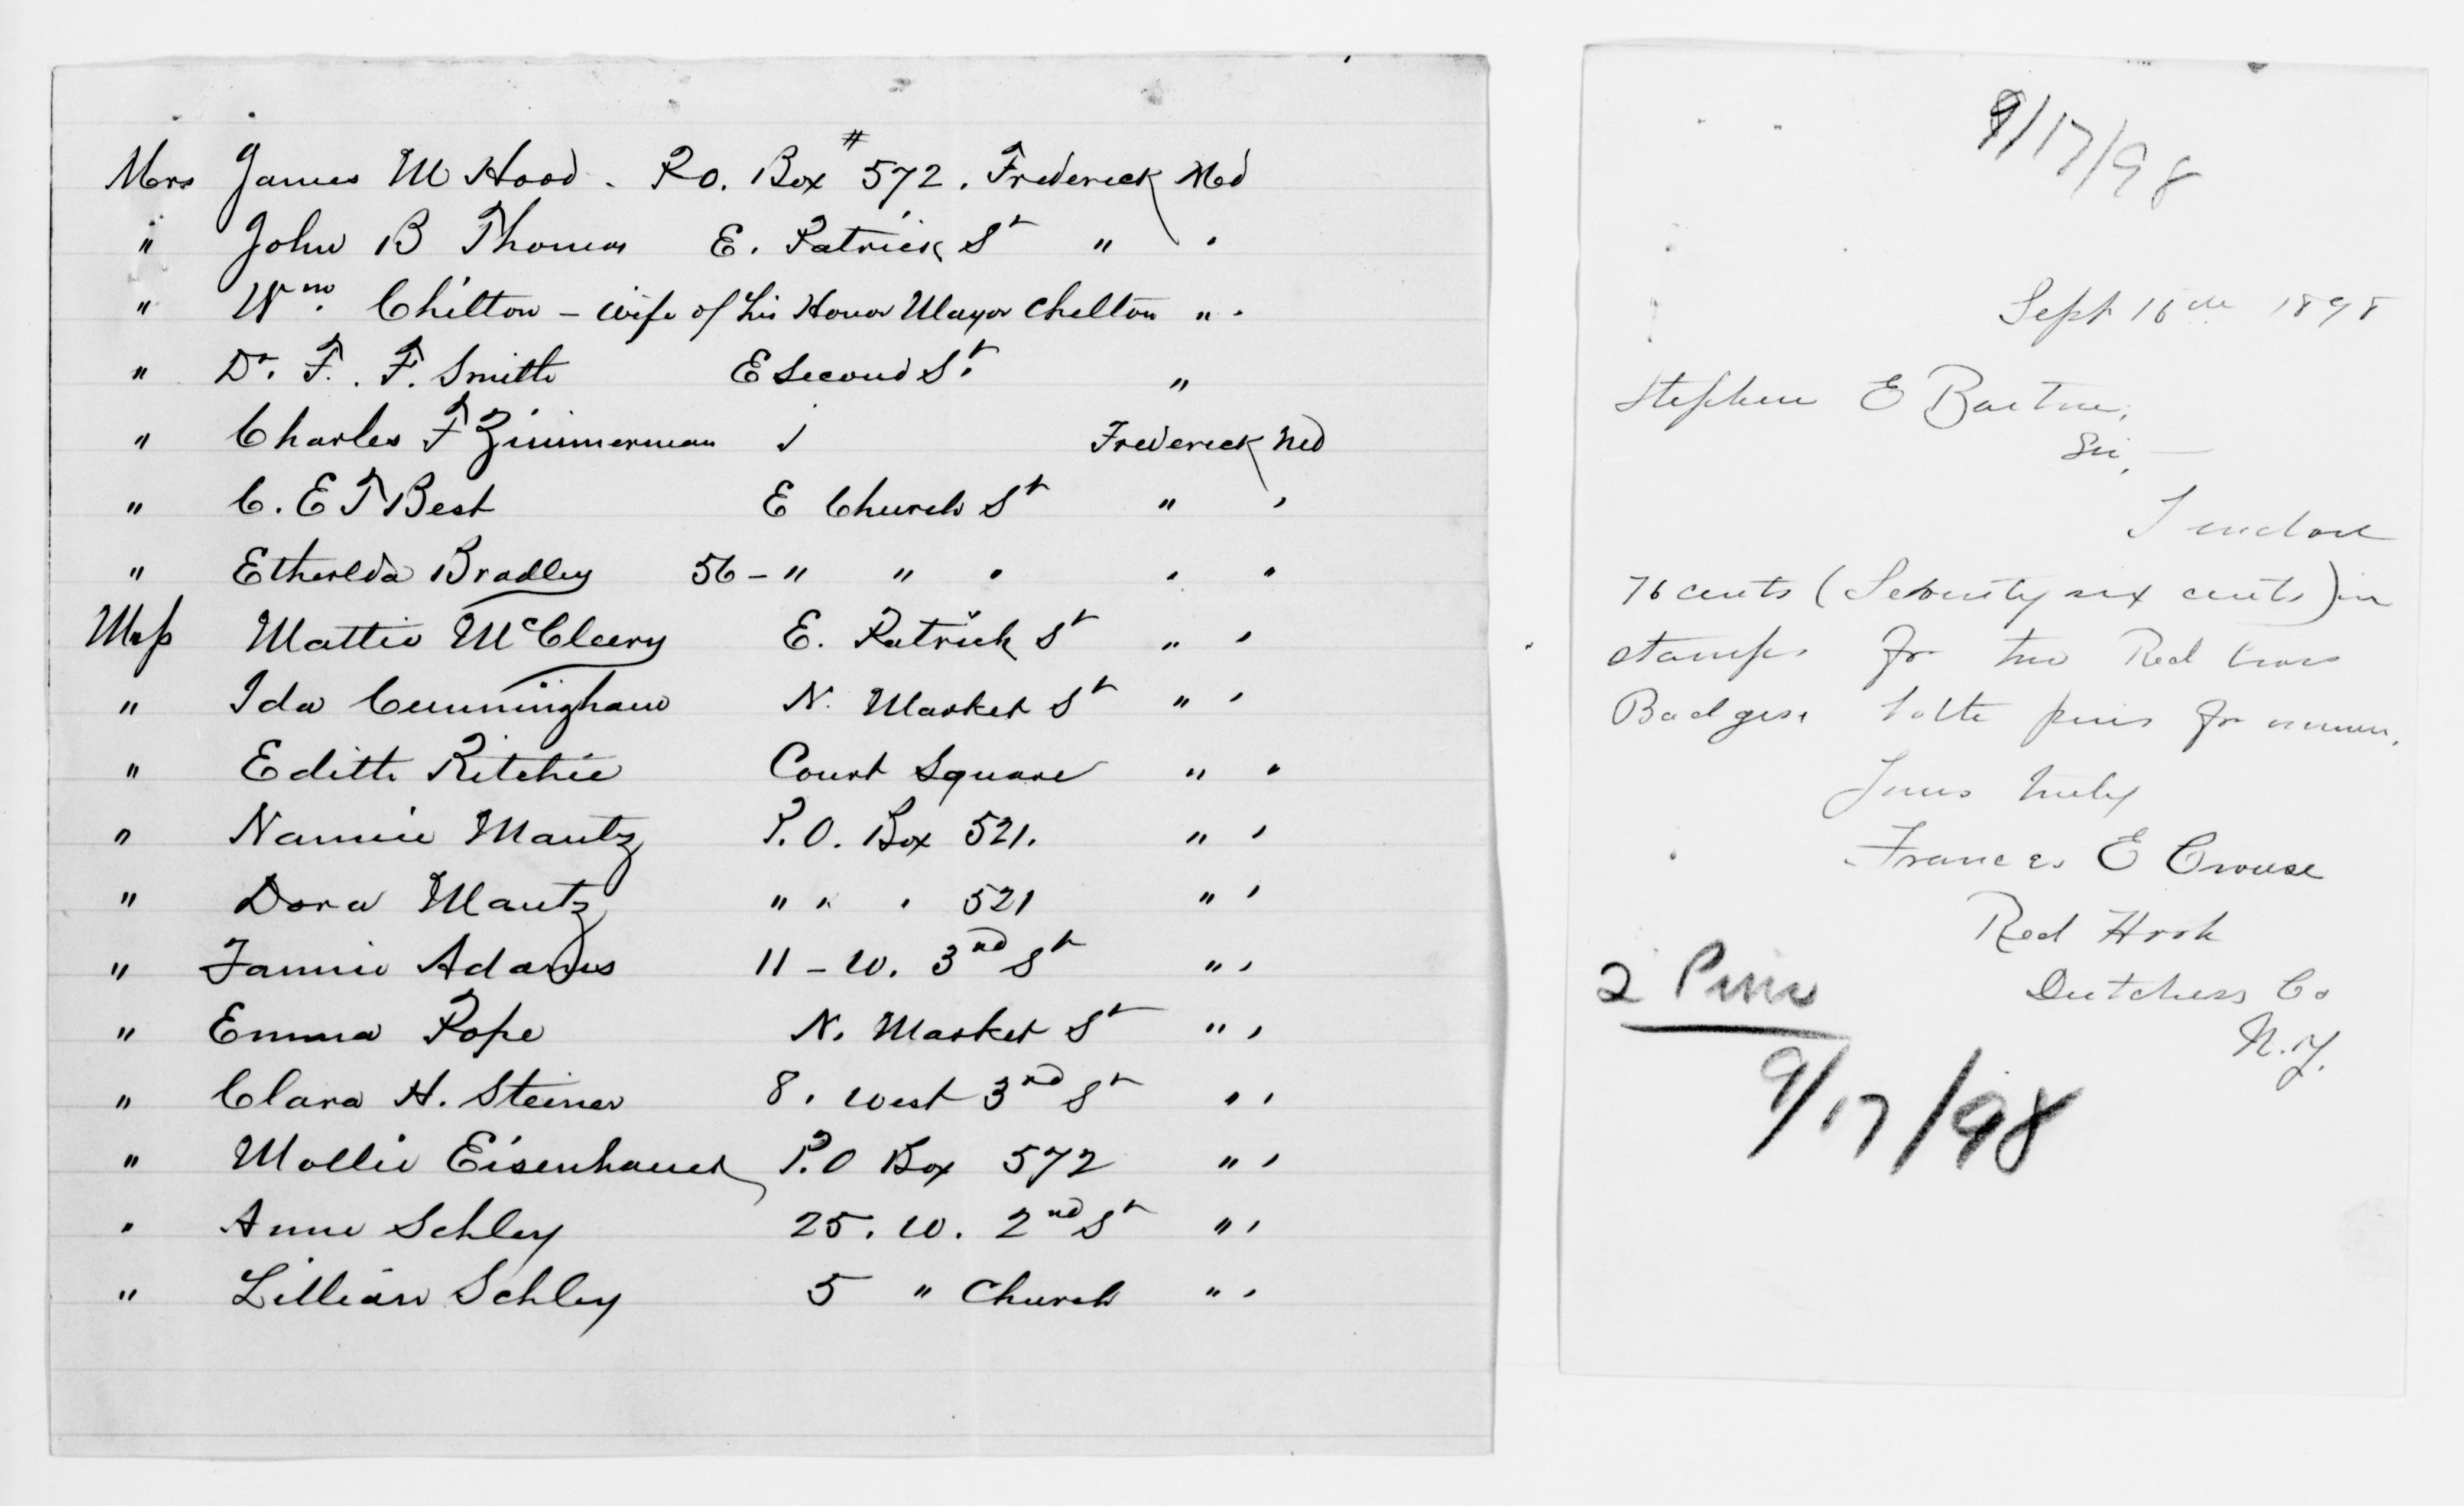 Mrs James M Hood. P.O. Box # 572. Frederick Md
" John B Thomas E. Patrick St " "
" Wm. Chilton - wife of his Honor Mayor Chilton " "
" Dr. F. F. Smith E Second St. "
" Charles F Zimmerman " Frederick Md
" C. E T Best E Church St " "
" Ethelda Bradley 56 - " " " " "
Miss Mattie McCleery E. Patrick St " "
" Ida Cunningham N. Market St " "
" Edith Ritchie Court Square " "
" Nannie Mantz P.O. Box 521. " "
" Dora Mantz " " " 521 " "
" Fannie Adams 11 - W. 3rd St " "
" Emma Pope N. Market St " "
" Clara H. Steiner 8. West 3rd St " "
" Mollie Eisenhauer P.O Box 572 " "
" Anne Schley 25. W. 2nd St " "
" Lillian Schley 5 " Church " "
9/17/98
Sept 16th 1898
Stephen E Barton,
Sir, —
I enclose
76 cents (Seventy six cents) in
stamps for two Red Cross
Badges, both pins for women.
Yours truly
Frances E Crouse
Red Hook
Dutchess Co
N.Y.
2 Pins
9/17/98